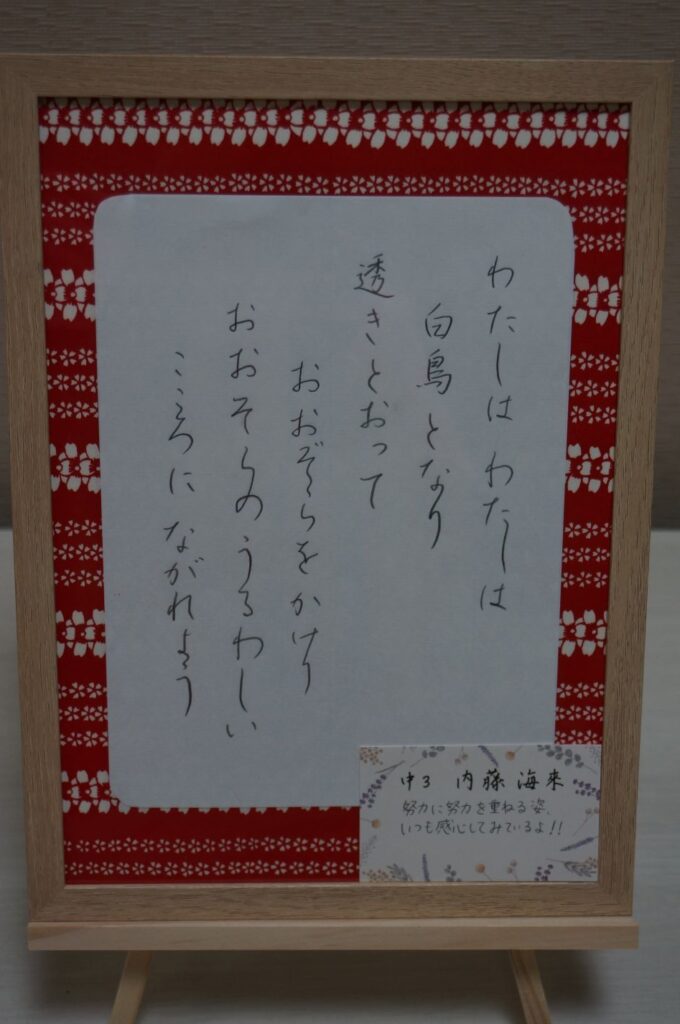 わたしは わたしは
白鳥となり
透きとおって
おおぞらをかけり
おおそらのうるわしい
こころに ながれよう
中3 内藤 海来
努力に努力を重ねる姿、
いつも感心してみているよ!!